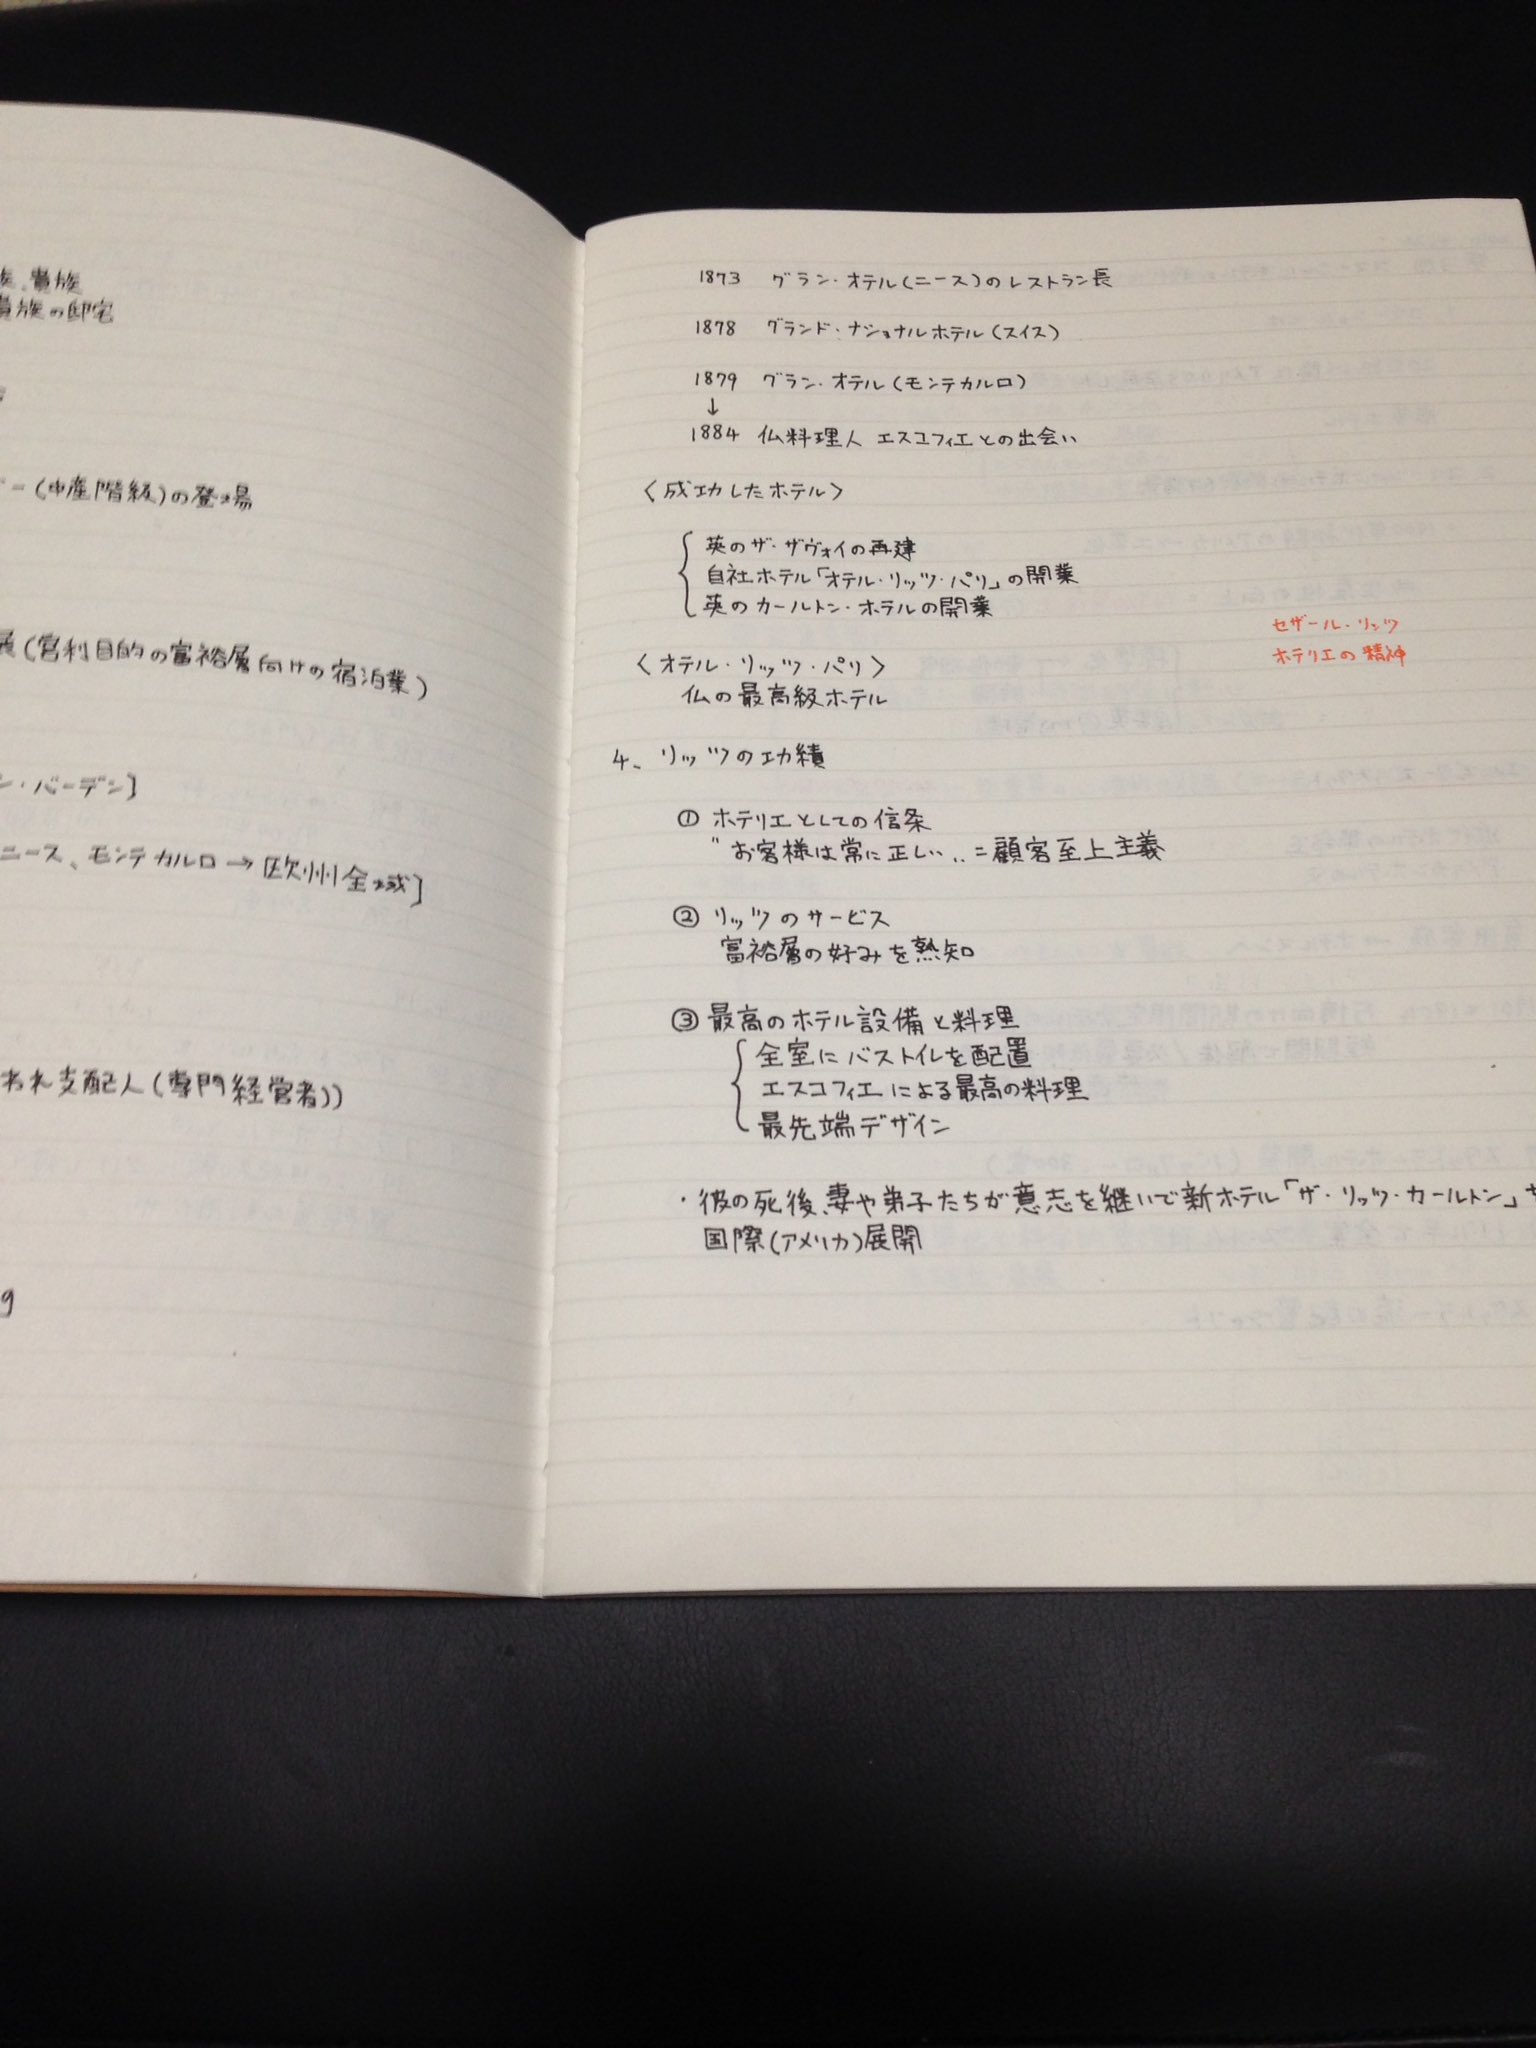 族、貴族
貴族の邸宅
ー(中産階級)の登場
展(営利目的の富裕層向けの宿泊業)
ン・バーデン]
ニース、モンテカルロ→欧州全域]
われ支配人(専門経営者))
9
1873 グラン・オテル(ニース)のレストラン長
1878 グランド・ナショナルホテル(スイス)
1879 グラン・オテル(モンテカルロ)
↓
1884 仏料理人 エスコフィエとの出会い
〈成功したホテル〉
英のザ・ザヴォイの再建
自社ホテル「オテル・リッツ・パリ」の開業
英のカールトン・ホテルの開業
セザール・リッツ
ホテリエの精神
〈オテル・リッツ・パリ〉
仏の最高級ホテル
4、リッツの功績
① ホテリエとしての信条
"お客様は常に正しい„=顧客至上主義
② リッツのサービス
富裕層の好みを熟知
③ 最高のホテル設備と料理
全室にバストイレを配置
エスコフィエによる最高の料理
最先端デザイン
・彼の死後、妻や弟子たちが意志を継いで新ホテル「ザ・リッツ・カールトン」
国際(アメリカ)展開